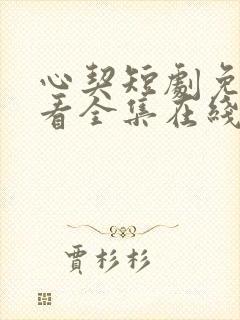 心契短劇免
看全集在綫
賈杉杉